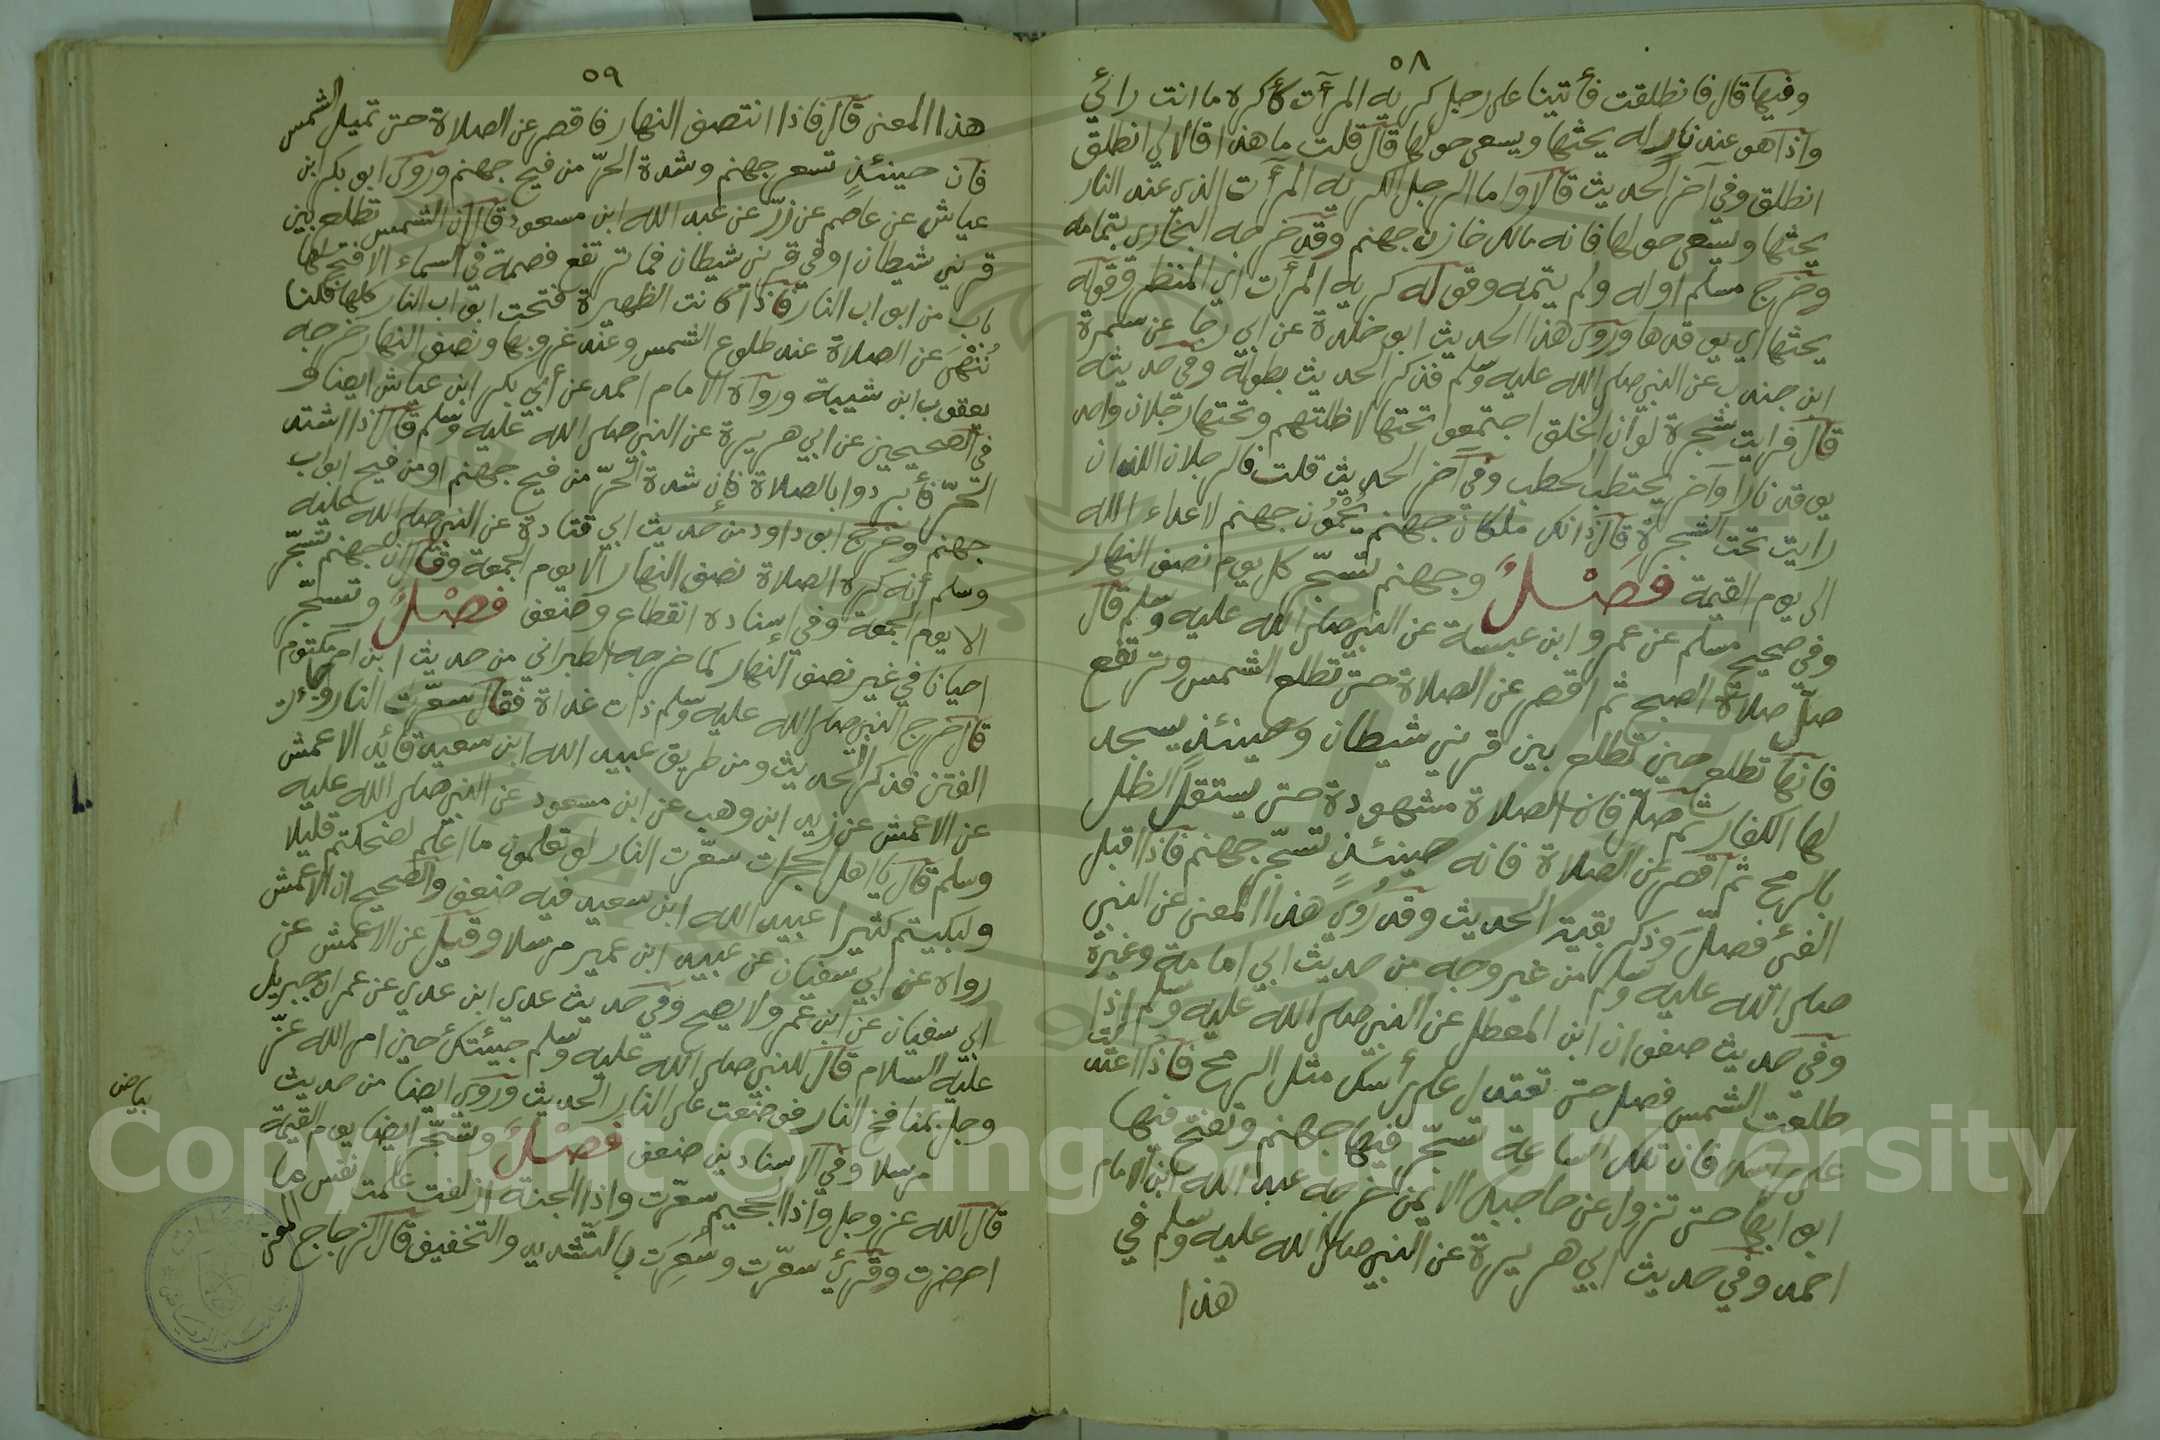 ٥٨
وفيها قال فانطلقت فأتينا على رجل كريه المرآت كأكره ما انت رائي
واذا هو عند نار له يحثها ويسعى حولها قال قلت ما هذا قالا لي انطلق
انطلق وفي آخر الحديث قالا واما الرجل الكريه المرآت الذي عند النار
يحثها ويسعى حولها فانه مالك خازن جهنم وقد خرجه البخاري بتمامه
وخرج مسلم اوله ولم يتمه وقوله كريه المرآت اي المنظر وقوله
يحثها اي يوقدها وروى هذا الحديث ابو خلدة عن ابي رجا عن سمرة
ابن جندب عن النبي صلى الله عليه وسلم فذكر الحديث بطوله وفي حديثه
قال فرايت شجرة لو ان الخلق اجتمعوا تحتها لاظلتهم وتحتها رجلان واحد
يوقد نارا وآخر يحتطب الحطب وفي آخر الحديث قلت فالرجلان اللذان
رايت تحت الشجرة قال ذانك ملكان جهنم يحمون جهنم لاعداء الله
الى يوم القيمة فصل وجهنم تسجّر كل يوم نصف النهار
وفي صحيح مسلم عن عمرو ابن عبسة عن النبي صلى الله عليه وسلم قال
صلّ صلاة الصبح ثم اقصر عن الصلاة حتى تطلع الشمس وترتفع
فانها تطلع حين تطلع بين قرني شيطان وحينئذ يسجد
لها الكفار ثم صلّ فان الصلاة مشهودة حتى يستقل الظل
بالرمح ثم اقصر عن الصلاة فانه حينئذ تسجّر جهنم فاذا اقبل
الفئ فصلّ وذكر بقية الحديث وقد روي هذا المعنى عن النبي
صلى الله عليه وسلم من غير وجه من حديث ابي امامة وغيره
وفي حديث صفوان ابن المعطل عن النبي صلى الله عليه وسلم اذا
طلعت الشمس فصل حتى تعتدل على رأسك مثل الرمح فاذا اعتدلت
على رأسك فان تلك الساعة تسجّر فيها جهنم وتفتح فيها
ابوابها حتى تزول عن حاجبك الايمن خرجه عبد الله ابن الامام
احمد وفي حديث ابي هريرة عن النبي صلى الله عليه وسلم في
هذا
٥٩
هذا المعنى قال فاذا انتصف النهار فاقصر عن الصلاة حتى تميل الشمس
فان حينئذٍ تسعر جهنم وشدة الحرّ من فيح جهنم وروى ابو بكر ابن
عياش عن عاصم عن زرّ عن عبد الله ابن مسعود قال ان الشمس تطلع بين
قرني شيطان او في قرني شيطان فما ترتفع قصمة في السماء الا فتح لها
باب من ابواب النار فاذا كانت الظهيرة فتحت ابواب النار كلها فكنا
نُنْهَى عن الصلاة عند طلوع الشمس وعند غروبها ونصف النهار خرجه
يعقوب ابن شيبة ورواه الامام احمد عن أبي بكر ابن عياش ايضا و
في الصحيحين عن ابي هريرة عن النبي صلى الله عليه وسلم قال اذا اشتد
الحرّ فأبردوا بالصلاة فان شدة الحرّ من فيح جهنم او من فيح ابواب
جهنم وخرّج ابو داود من حديث ابي قتادة عن النبي صلى الله عليه
وسلم أنه كره الصلاة نصف النهار الا يوم الجمعة وقال ان جهنم تسجّر
الا يوم الجمعة وفي إسناده انقطاع وضعف فصل وتسجّر
احيانا في غير نصف النهار كما خرجه الطبراني من حديث ابن ام مكتوم
قال خرج النبي صلى الله عليه وسلم ذات غداة فقال سعّرت النار وجاءت
الفتن فذكر الحديث ومن طريق عبيد الله ابن سعيد قائد الاعمش
عن الاعمش عن زيد ابن وهب عن ابن مسعود عن النبي صلى الله عليه
وسلم قال يا اهل الحجرات سعّرت النار لو تعلمون ما اعلم لضحكتم قليلا
ولبكيتم كثيرا عبيد الله ابن سعيد فيه ضعف والصحيح ان الاعمش
رواه عن ابي سفيان عن عبيد ابن عمير مرسلا وقيل عن الاعمش عن
ابي سفيان عن ابن عمر ولا يصح وفي حديث عدي ابن عدي عن عمر ان جبريل
عليه السلام قال للنبي صلى الله عليه وسلم جيئتك حين امر الله عزّ
وجل بمنافخ النار فوضعت على النار الحديث وروى ايضا من حديث
مرسلا وفي الاسنادين ضعف فصل وتسجّر ايضا يوم القيمة
قال الله عز وجل واذا الجحيم سعّرت واذا الجنة ازلفت علمت نفس ما
احضرت وقرئ سعّرت وسُعِرَت بالتشديد والتخفيف قال الزجاج المعنى
بياض
Copyright © King Saud University